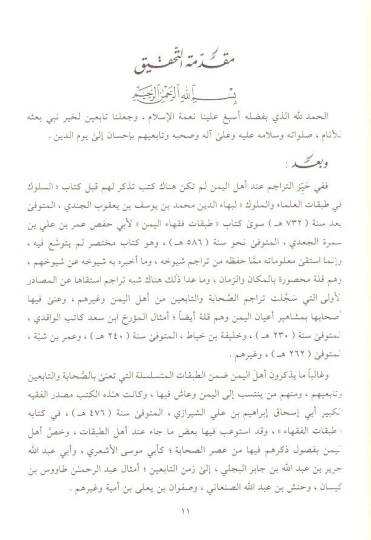 مقدمة التحقيق
بسم الله الرحمن الرحيم
الحمد لله الذي بفضله أسبغ علينا نعمة الإسلام ، وجعلنا تابعين لخير نبي بعثه
للأنام ، صلواته وسلامه عليه وعلى آله وصحبه وتابعيهم بإحسان إلى يوم الدين .
وبعد :
ففي حَيِّز التراجم عند أهل اليمن لم تكن هناك كتب تذكر لهم قبل كتاب « السلوك
في طبقات العلماء والملوك » لبهاء الدين محمد بن يوسف بن يعقوب الجندي ، المتوفىٰ
بعد سنة ( ٧٣٢ هـ ) سوىٰ كتاب « طبقات فقهاء اليمن » لأبي حفص عمر بن علي بن
سمرة الجعدي ، المتوفىٰ نحو سنة ( ٥٨٦ هـ ) ، وهو كتاب مختصر لم يتوسَّع فيه ،
وإنما استقىٰ معلوماته ممَّا حفظه من تراجم شيوخه ، وما أخبره به شيوخه عن شيوخهم ،
وهم قلة محصورة بالمكان والزمان ، وما عدا ذلك هناك شبه تراجم استقاها عن المصادر
الأولى التي سَجَّلت تراجم الصَّحابة والتابعين من أهل اليمن وغيرهم ، وعنى فيها
أصحابها بمشاهير أعيان اليمن وهم قلة أيضاً ؛ أمثال المؤرخ ابن سعد كاتب الواقدي ،
المتوفىٰ سنة ( ٢٣٠ هـ ) ، وخليفة بن خياط ، المتوفىٰ سنة ( ٢٤٠ هـ ) ، وعمر بن شبَّة ،
المتوفىٰ ( ٢٦٢ هـ ) ، وغيرهم .
وغالباً ما يذكرون أهل اليمن ضمن الطبقات المتسلسلة التي تعنىٰ بالصَّحابة والتابعين
وتابعيهم ، ومنهم من ينتسب إلى اليمن وعاش فيها ، وكانت هذه الكتب مصدر الفقيه
الكبير أبي إسحاق إبراهيم بن علي الشيرازي ، المتوفىٰ سنة ( ٤٧٦ هـ ) ، في كتابه
« طبقات الفقهاء » ، وقد استوعب فيها بعض ما جاء عند أهل الطبقات ، وخصَّ أهل
اليمن بفصول ذكرهم فيها من عصر الصحابة ؛ كأبي موسى الأشعري ، وأبي عبد الله
جرير بن عبد الله بن جابر البجلي ، إلىٰ زمن التابعين ؛ أمثال عبد الرحمٰن طاووس بن
كيسان ، وحنش بن عبد الله الصنعاني ، وصفوان بن يعلى بن أمية وغيرهم .
١١